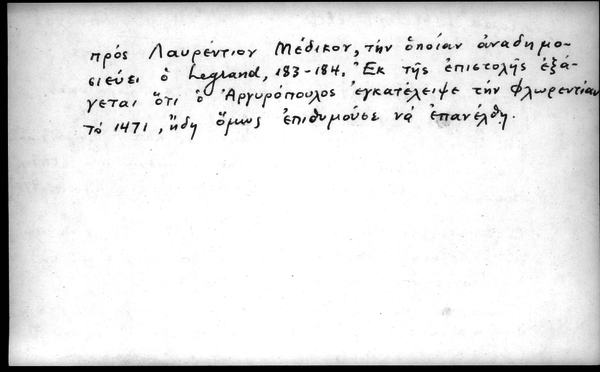 πρός Λαυρέντιον Μέδικον, τήν ὁποίαν ἀναδημο-
σιεύει ὁ Legrand, 183-184. Ἐκ τῆς ἐπιστολῆς ἐξά-
γεται ὅτι ὁ Ἀργυρόπουλος ἐγκατέλειψε τήν Φλωρεντίαν
τό 1471, ἤδη ὅμως ἐπιθυμοῦσε νά ἐπανέλθῃ.